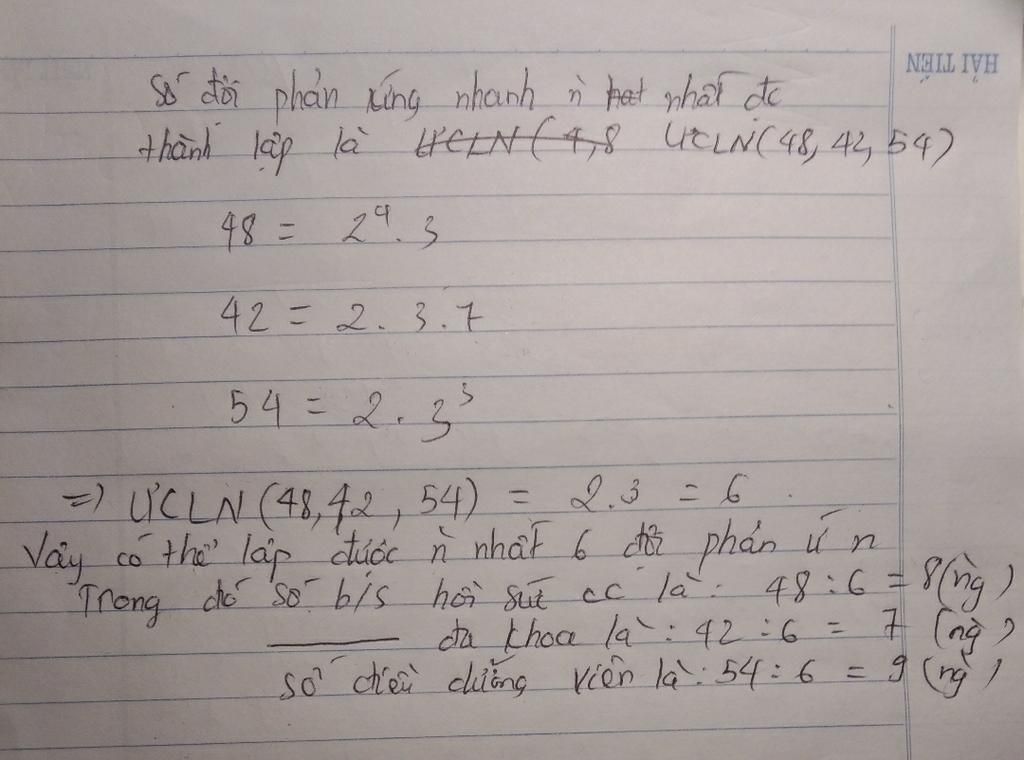 HẢI TIẾN
Số đội phản ứng nhanh ǹ nhất đc
thành lập là ƯCLN(4,8 ƯCLN(48, 42, 54)
48 = 2⁴. 3
42 = 2. 3. 7
54 = 2. 3³
=) ƯCLN(48,42, 54) = 2.3 = 6.
Vậy có thể lập được ǹ nhất 6 đội phản ứ n
Trong đó số b/s hồi sức cc là: 48 : 6 = 8(ng̀)
——— đa khoa là: 42 : 6 = 7 (ng̀)
số điều dưỡng viên là: 54 : 6 = 9 (ng̀)